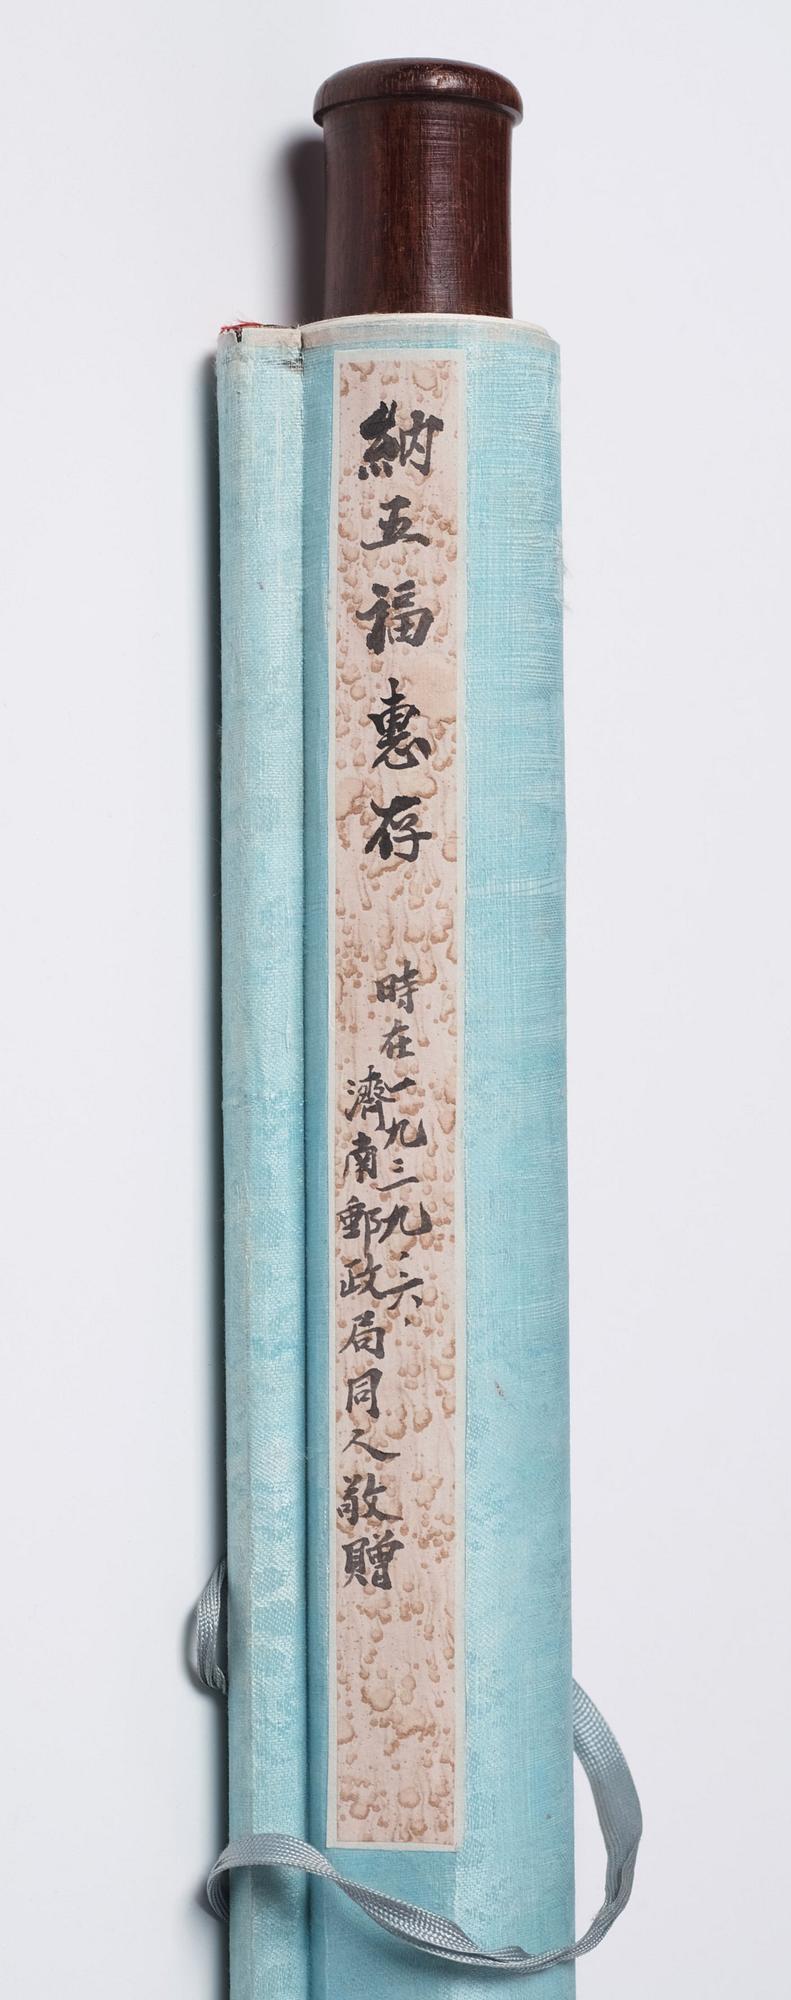 納五福惠存
時在一九三九.三.六.
濟南郵政局同人敬贈